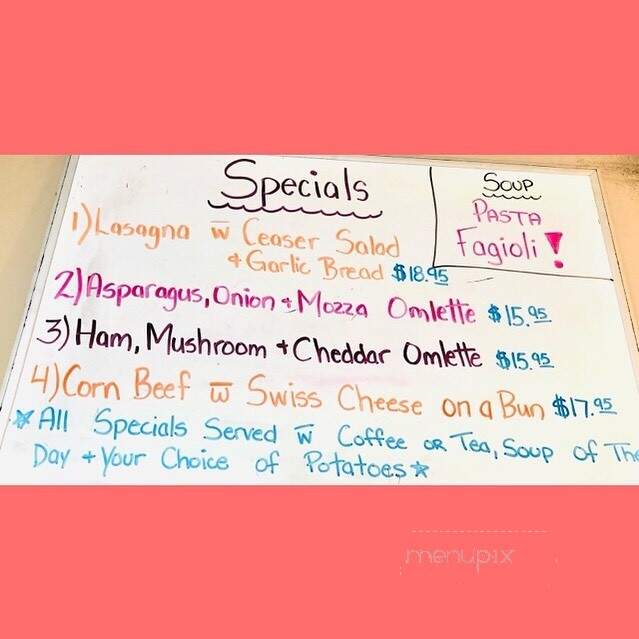 Specials
1) Lasagna w̅ Ceaser Salad
+ Garlic Bread $18.95
2) Asparagus, Onion + Mozza Omlette $15.95
3) Ham, Mushroom + Cheddar Omlette $15.95
4) Corn Beef w̅ Swiss Cheese on a Bun $17.95
☆ All Specials Served w̅ Coffee OR Tea, Soup of The
Day + Your Choice of Potatoes ☆
SOUP
PASTA
Fagioli !
menupix